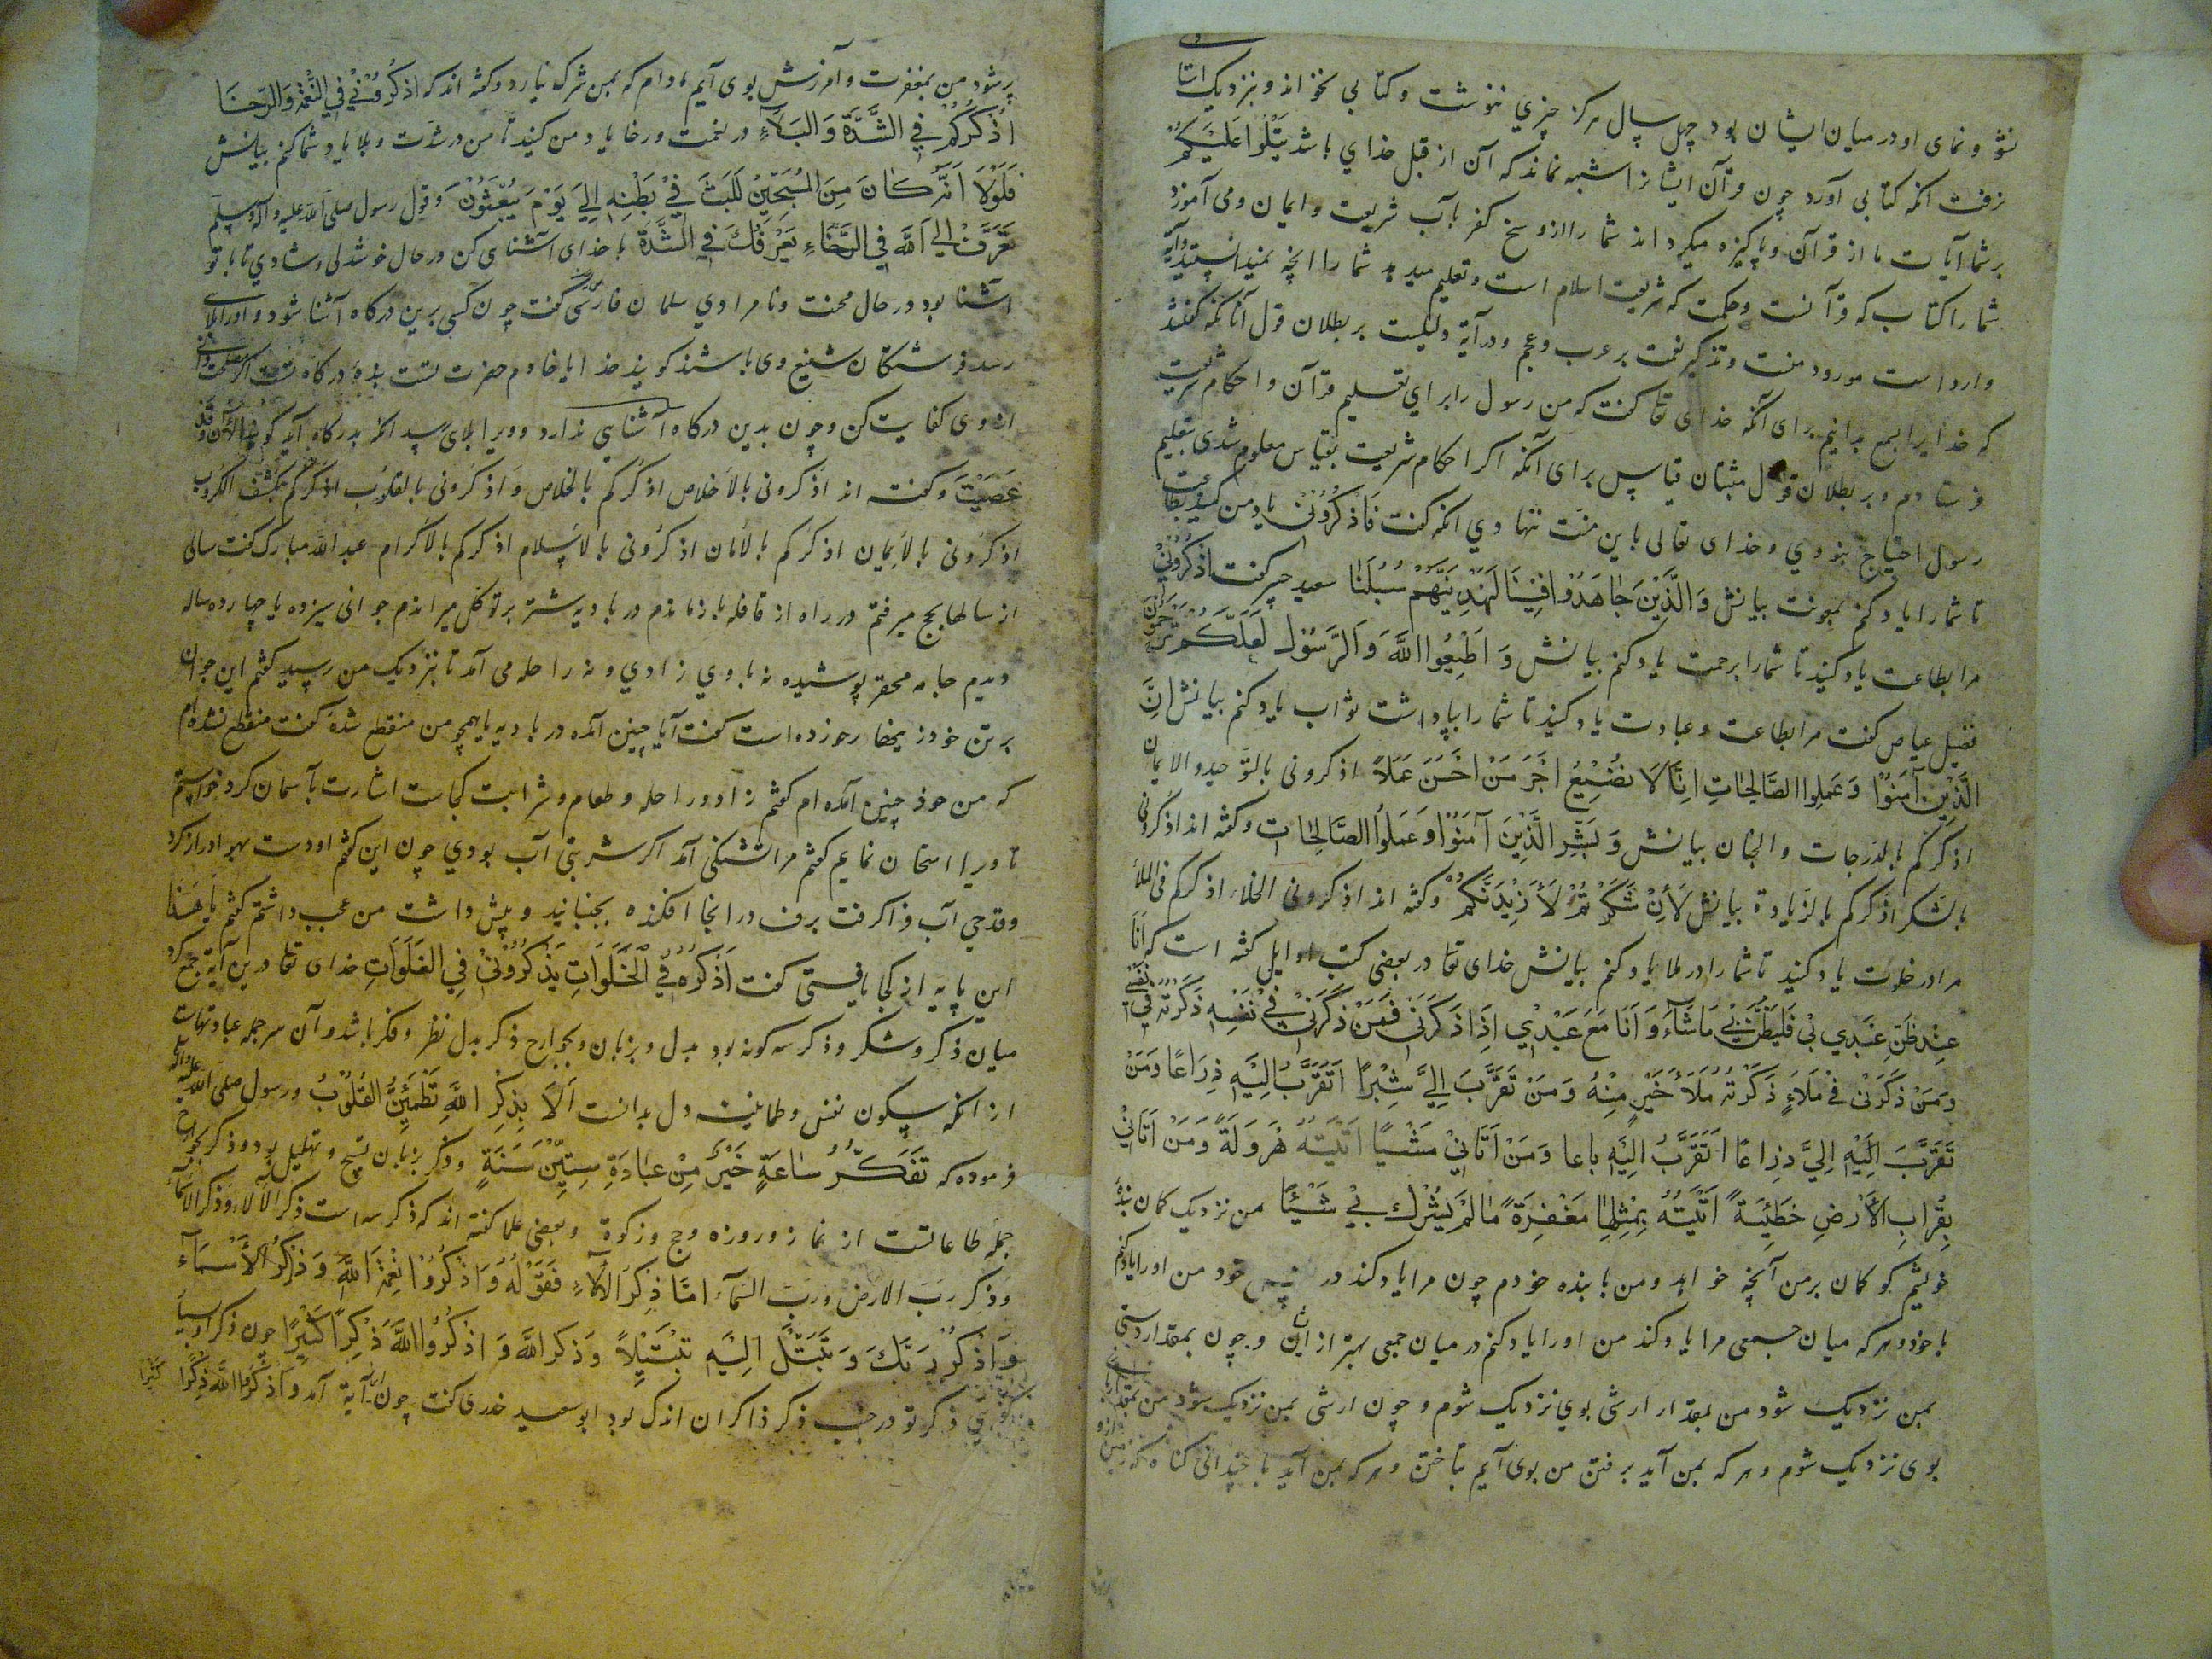 نشو و نمای او در میان ایشان بود چهل سال هرگز چیزی ننوشت و کتابی نخواند و بنزدیک استا
نرفت انکه کتابی آورد چون قرآن ایشانرا شبه نماند که آن از قبل خدای باشد یَتْلُوا عَلَیْکُمْ
بر شما آیات ما از قرآن و پاکیزه میکرداند شما را از وسخ کفر بآب شریعت و ایمان و می آموزد
شما را کتاب که قرآنست و حکمت که شریعت اسلام است و تعلیم میدهد شما را انچه نمیدانستید و آیه
وارد است مورد منت و تذکیر نعمت بر عرب و عجم و در آیة دلیلیست بر بطلان قول آنانکه کفتند
که خدایرا بسمع بدانیم برای آنکه خدای تعا کفت که من رسول را برای تعلیم قرآن و احکام شریعت
فرستادم و بر بطلان قول مثبتان قیاس برای آنکه اکر احکام شریعت بقیاس معلوم شدی بتعلیم
رسول احتیاج نبودی و خدای تعالی باین منّت ننهادی انکه کفت فَاذْکُرُونی یاد من کنید بطاعت
تا شما را یاد کنم بمعونت بیانش وَالَّذِیْنَ جَاهَدُوْا فِیْنَا لَنَهْدِیَنَّهُمْ سُبُلَنَا سعید جبیر کفت اذْکُرُونِیْ
مرا بطاعت یاد کنید تا شما را برحمت یاد کنم بیانش وَ اَطِیْعُوا اللَّهَ وَ الرَّسُوْلَ لَعَلَّکُمْ تُرْحَمُوْنَ
فضیل عیاض کفت مرا بطاعت و عبادت یاد کنید تا شما را بپاداشت ثواب یاد کنم بیانش اِنَّ
الَّذِیْنَ آمَنُوْا وَعَمِلُوا الصَّالِحَاتِ اِنَّا لَا نُضِیْعُ اَجْرَ مَنْ اَحْسَنَ عَمَلاً اذکرونی بالتّوحید و الایمان
اذکرکم بالدرجات و الجنان بیانش وَ بَشِّرِ الَّذِیْنَ آمَنُوْا وَعَمِلُوا الصَّالِحَاتِ و کفته اند اذکرونی
بالشکر اذکرکم بالزیادة بیانش لَأِنْ شَکَرْتُمْ لَأَزِیْدَنَّکُمْ و کفته اند اذکرونی الخلاء اذکرکم فی الملأ
مرا در خلوت یاد کنید تا شما را در ملا یاد کنم بیانش خدای تعا در بعضی کتب اوایل کفته است که اَنَا
عِنْدَ ظَنِّ عَبْدِی بْی فَلْیَظُنَّ بْی مَا شَآءَ وَ اَنَا مَعَ عَبْدِیْ اِذَا ذَکَرَنْی فَمَنْ ذَکَرَنْی فِیْ نَفْسِهِ ذَکَرْتُهُ فِیْ نَفْسِیْ
وَمَنْ ذَکَرَنْی فِیْ مَلَاءٍ ذَکَرْتُهُ مَلَاءٍ خَیْرٍ مِنْهُ وَمَنْ تَقَرَّبَ اِلَیَّ شِبْرًا اَتَقَرَّبُ اِلَیْهِ ذِرَاعًا وَمَنْ
تَقَرَّبَ اِلَیْهِ اِلَیَّ ذِرَاعًا اَتَقَرَّبُ اِلَیْهِ باعا وَمَنْ اَتَانِیْ مَشْیًا اَتَیْتُهُ هَرْوَلَةً وَمَنْ اَتَانِیْ
بِقُرَابِ الْأَرْضِ خَطِیْئَةً اَتَیْتُهُ بِمِثْلِهَا مَغْفِرَةً مَا لَمْ یُشْرِکْ بِیْ شَیْئًا من نزدیک کمان بندهٔ
خویشم کو کمان بر من آنچه خواهد و من با بنده خودم چون مرا یاد کند در نفس خود من او را یاد کنم
با خود و هر که میان جمعی مرا یاد کند من او را یاد کنم در میان جمعی بهتر از ایشان و چون بمقدار دستی
بمن نزدیک شود من بمقدار ارشی بوی نزدیک شوم و چون ارشی بمن نزدیک شود من بمقدار باعی
بوی نزدیک شوم و هر که بمن آید برفتن من بوی آیم بتاختن و هر که بمن آید با چندانی کناه که زمین ازو
پر شود من بمغفرت و آمرزش بوی آیم مادام که بمن شرک نیارد و کفته اند که اذْکُرُوْنِیْ فِی النِّعْمَةِ وَالرَّخَاءِ
اَذْکُرْکُمْ فِی الشِّدَّةِ وَالبَلَآءِ در نعمت و رخا یاد من کنید تا من در شدّت و بلا یاد شما کنم بیانش
فَلَوْلَا اَنَّهُ کَانَ مِنَ المُسَبِّحِیْنَ لَلَبِثَ فِیْ بَطْنِهِ اِلَی یَوْمِ یُبْعَثُوْنَ وَ قول رسول صلی الله علیه و آله و سلم
تَعَرَّفْ اِلَی اللّهِ فِی الرَّخَاءِ یَعْرِفْکَ فِی الشِّدَّةِ با خدای آشنای کن در حال خوشدلی و شادی تا با تو
آشنا بود در حال محنت و نامرادی سلمان فارسی کفت چون کسی برین درکاه آشنا شود و او را بلای
رسد فرشتکان شفیع وی باشند کویند خدایا خادم حضرت تست بندهٔ درکاه تست
از وی کفایت کن و چون بدین درکاه آشنایی ندارد و ویرا بلای رسد انکه بدرکاه آید کویند آلْآنَ وَقَدْ
عَصَیْتَ و کفته اند اذکرونی بالاخلاص اذکرکم بالخلاص و اذکرونی بالقلوب اذکرکم بکشف الکروب
اذکرونی بالایمان اذکرکم بالامان اذکرونی بالاسلام اذکرکم بالاکرام عبدالله مبارک کفت سالی
از سالها بحج میرفتم در راه از قافله باز ماندم در بادیه شتر بر توکل میراندم جوانی سیزده یا چهارده ساله
دیدم جامه محقر پوشیده نه با وی زادی و نه راحله می آمد تا بنزدیک من رسید کفتم این جوان
بر تن خود زنهار خورده است کفت آیا چنین آمده در بادیه یا همچو من منقطع شدهٔ کفت منقطع نشده ام
که من خود چنین آمده ام کفتم زاد و راحله و طعام و شرابت کجاست اشارت بآسمان کرد خواستم
تا ویرا امتحان نمایم کفتم مرا تشنکی آمد اکر شربتی آب بودی چون این کفتم او دست بهوا دراز کرد
و قدحی آب فرا کرفت برف در آنجا افکنده بجنبانید و پیش داشت من عجب داشتم کفتم یا هذا
این پایه از کجا یافتی کفت اَذْکُرُهُ فِی الْخَلَوَاتِ یَذْکُرُوْنِیْ فِی الفَلَوَاتِ خدای تعا درین آیة جمع کرد
میان ذکر و شکر و ذکر سه کونه بود بدل و بزبان و بجوارح ذکر بدل نظر و فکر باشد و آن سر جمله عبادتهاست
از آنکه سکون نفس و طمانینت دل بدانست اَلَا بِذِکْرِ اللّهِ تَطْمَئِنُّ القُلُوْبُ و رسول صلی الله علیه و آله
فرموده که تَفَکُّرُ سَاعَةٍ خَیْرٌ مِنْ عِبَادَةِ سِتِّیْنَ سَنَةٍ و ذکر بزبان تسبیح و تهلیل بود و ذکر بجوارح
جمله طاعاتست از نماز و روزه و حج و زکوة و بعضی علما کفته اند که ذکر سه است ذکر الآلاء و ذکر الاسماء
و ذکر ربّ الارض و ربّ السمآء امّا ذِکْرُ الآلَاءِ فَقَوْلُهُ وَاذْکُرُوْا نِعْمَةَ اللّهِ وَ ذِکْرُ الأَسْمَآءِ
وَاذْکُرْ رَبَّکَ وَ تَبَتَّلْ اِلَیْهِ تَبْتِیْلاً وَ ذکر الله وَ اذْکُرُوا اللّهَ ذِکْرًا کَثِیْرًا چون ذکر او بسیا
ذکر تو در جنب ذکر ذاکران اندک بود ابو سعید خدری کفت چون این آیة آمد وَ اذْکُرُوا اللّهَ ذِکْرًا کَثِیْرًا